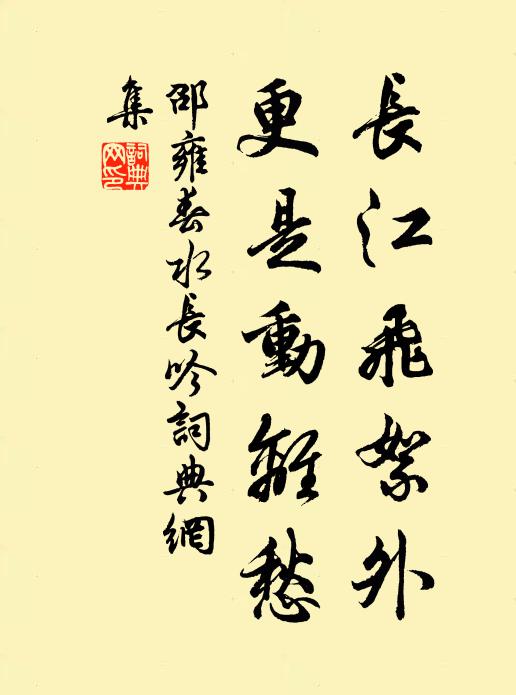 長江飛絮外
更是動離愁
邵雍春水長吟詞典網
集
詞典
網